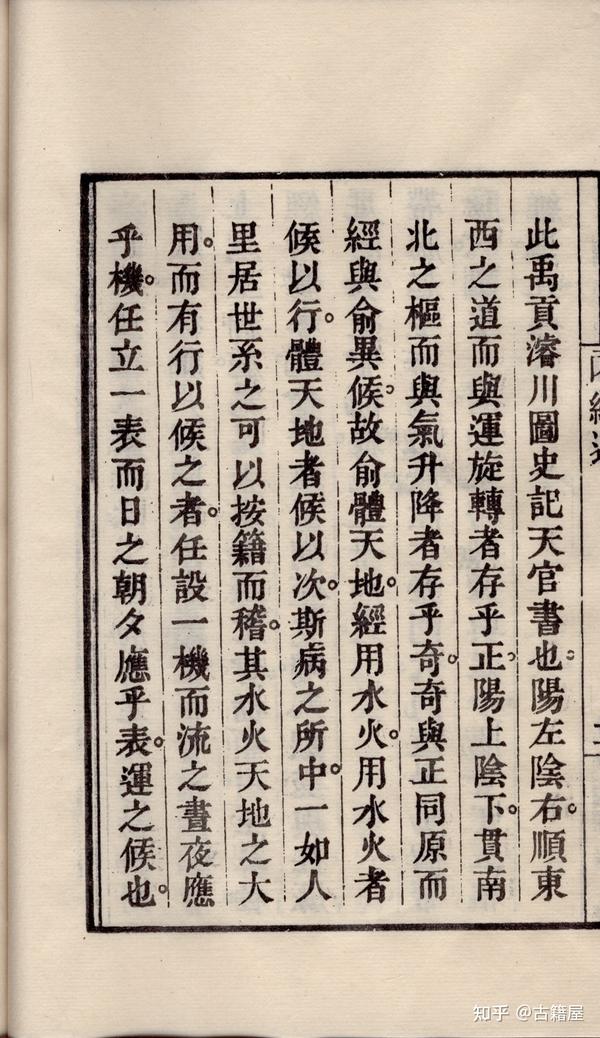 此禹貢濬川圖史記天官書也。陽左陰右。順東
西之道而與運旋轉者存乎正。陽上陰下。貫南
北之樞而與氣升降者存乎奇。奇與正同原而
經與俞異候。故俞體天地。經用水火。用水火者
候以行。體天地者候以次。斯病之所中。一如人
里居世系之可以按籍而稽。其水火天地之大
用。而有行以候之者。任設一機而流之晝夜應
乎機。任立一表而日之朝夕應乎表。運之候也。
知乎 @古籍屋